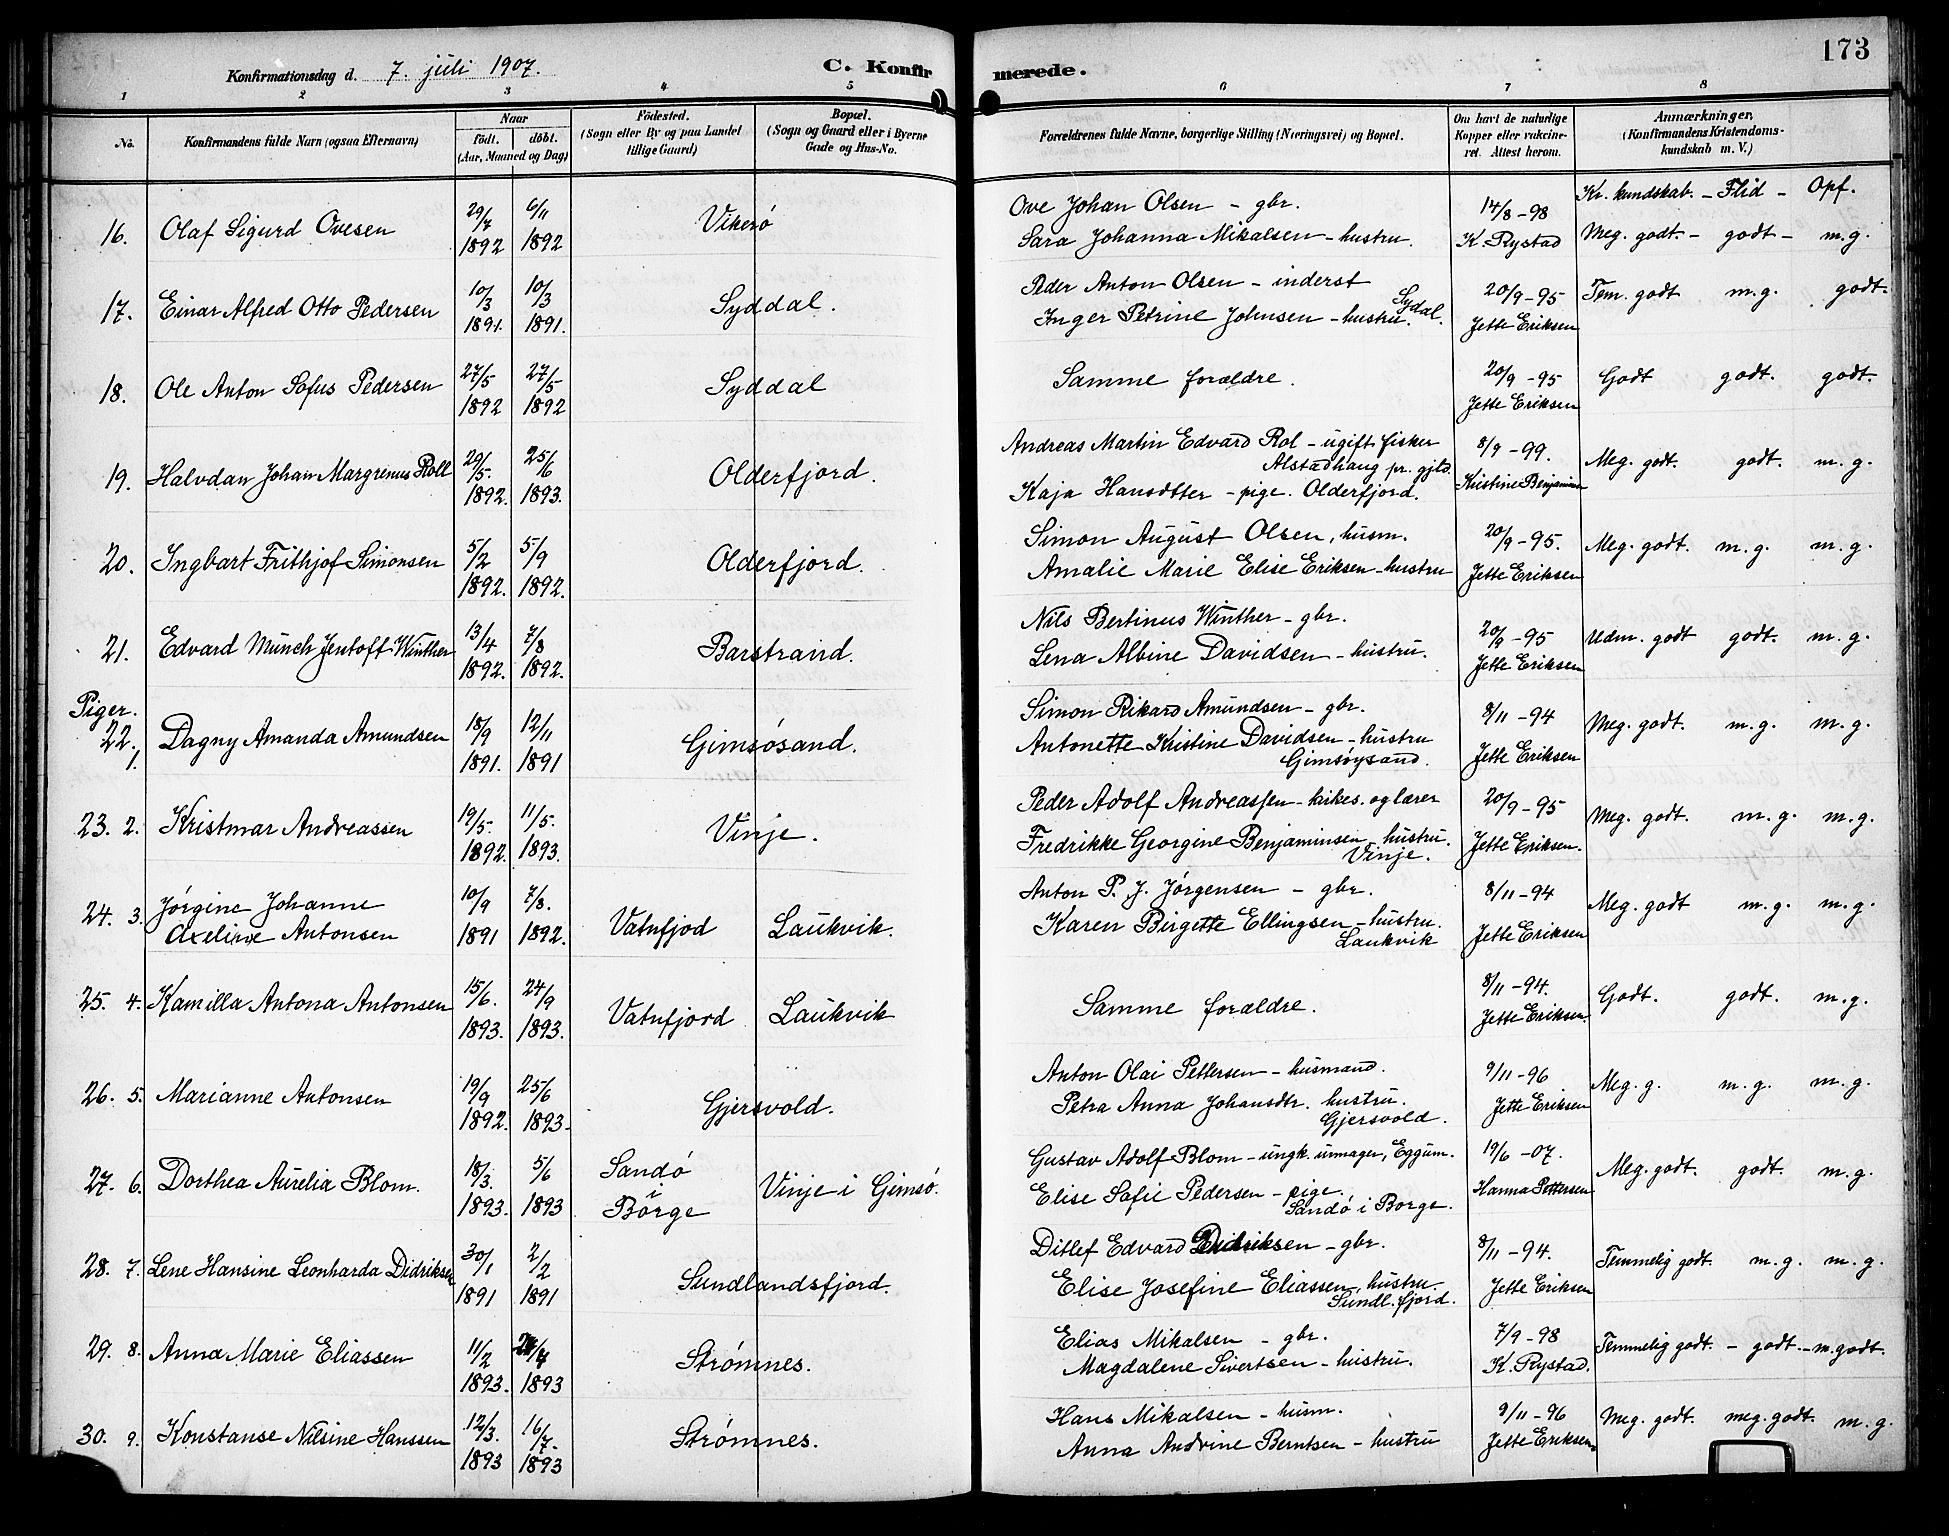 173
Konfirmationsdag d. 7. juli 1907.
C. Konfirmerede.
1 2 3 4 5 6 7 8
No.
Konfirmandens fulde Navn (ogsaa Efternavn)
Naar
født. døbt.
(Aar, Maaned og Dag)
Fødested.
(Sogn eller By og paa Landet
tillige Gaard)
Bopæl.
(Sogn og Gaard eller i Byerne
Gade og Hus-No.
Forældrenes fulde Navne, borgerlige Stilling (Næringsvei) og Bopæl.
Om havt de naturlige
Kopper eller vakcine-
ret. Attest herom.
Anmærkninger.
(Konfirmandens Kristendoms-
kundskab m. V.)
Kr. kundskab. – Flid – Opf.
16. Olaf Sigurd Ovesen 29/7 1892 6/11 1892 Vikerø
Ove Johan Olsen – gbr.
Sara Johanna Mikalsen – hustru.
14/8 – 98
K. Rystad
Meg. godt. – godt – m. g.
17. Einar Alfred Otto Pedersen 10/3 1891. 10/3 1891. Syddal.
Peder Anton Olsen – inderst
Inger Petrine Johnsen – hustru. Sydal.
20/9 – 95
Jette Eriksen
Tem. godt m. g. godt.
18. Ole Anton Sofus Pedersen 27/5 1892 27/5 1892 Syddal
Samme forældre.
20/9 – 95
Jette Eriksen
Godt godt. godt.
19. Halvdan Johan Margrenus Roll 29/5. 1892. 25/6 1893. Olderfjord.
Andreas Martin Edvard Rol – ugift fisker
Alstadhaug pr. gjld.
Kaja Hansdtter – pige. Olderfjord.
8/9 – 99.
Kristine Benjaminsen
Meg. godt. godt. m. g.
20. Ingbart Frithjof Simonsen 5/2 1892. 5/9 1892. Olderfjord.
Simon August Olsen, husm.
Amalie Marie Elise Eriksen – hustru
20/9 – 95.
Jette Eriksen
Meg. godt. m. g. m. g.
21. Edvard Münch Jentoft Winther 13/4 1892. 7/8 1892. Barstrand.
Nils Bertinus Winther – gbr.
Lena Albine Davidsen – hustru.
20/9 – 95
Jette Eriksen
Udm. godt godt. m. g.
Piger.
22. 1. Dagny Amanda Amundsen 18/9 1891. 12/11 1891 Gimsøsand.
Simon Rikard Amundsen – gbr.
Antonette Kristine Davidsen – hustru
Gimsøysand.
8/11 – 94
Jette Eriksen
Meg. godt. m. g. m. g.
23. 2. Kristmar Andreassen 19/5. 1892. 11/5. 1893. Vinje.
Peder Adolf Andreassen – kirkes. og lærer
Fredrikke Georgine Benjaminsen – hustru.
Vinje.
20/9 – 95
Jette Eriksen.
Meg. godt. m. g. m. g.
24. 3. Jørgine Johanne
Axeline Antonsen 10/9 1891 7/8. 1892. Vatnfjod Laukvik.
Anton P. J. Jørgensen – gbr.
Karen Birgette Ellingsen – hustru.
Laukvik
8/11 – 94
Jette Eriksen
Meg. godt m. g. m. g.
25. 4. Kamilla Antona Antonsen 15/6. 1893. 24/9 1893. Vatnfjord Laukvik
Samme forældre.
8/11 – 94.
Jette Eriksen.
Godt. godt. m. g.
26. 5. Marianne Antonsen 19/9 1892. 25/6 1893. Gjersvold.
Anton Olai Pettersen – husmand.
Petra Anna Johansdtr. hustru.
Gjersvold.
9/11 – 96
Jette Eriksen
Meg. g. m. g. m. g.
27. 6. Dorthea Aurelia Blom. 18/3. 1893. 5/6 1893 Sandø i Børge Vinje i Gimsø.
Gustav Adolf Blom – ungk. urmager, Eggum.
Elise Sofie Pedersen – pige.
Sandø i Borge.
19/6 – 07.
Hanna Pettersen
Meg. godt. godt. m. g.
28. 7. Lene Hansine Leonharda Didriksen 30/1 1891 2/2 1891 Sundlandsfjord.
Ditlef Edvard Didriksen – gbr.
Elise Josefine Eliassen, hustru.
Sundl. fjord.
8/11 – 94.
Jette Eriksen
Temmelig godt. m. g. m. g.
29. 8. Anna Marie Eliassen 11/2 1893. 1893 Strømnes.
Elias Mikalsen – gbr.
Magdalene Sivertsen – hustru.
7/9 – 98
K. Rystad.
Temmelig godt. – godt. – m. godt.
30. 9. Konstanse Nilsine Hanssen 12/3. 1893 16/7. 1893 Strømnes.
Hans Mikalsen – husm.
Anna Andrine Berntsen – hustru
9/11 – 96
Jette Eriksen
Meg. godt. meg. godt. m. g.